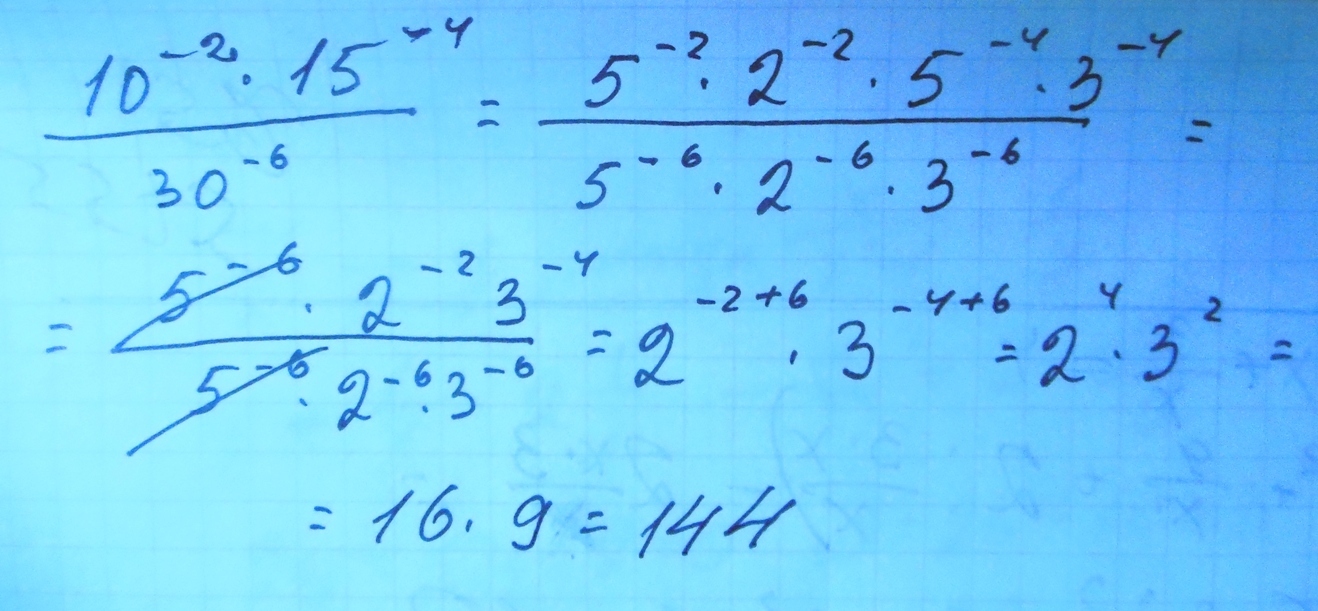 10^-2 · 15^-4 / 30^-6 = 5^-2 · 2^-2 · 5^-4 · 3^-4 / 5^-6 · 2^-6 · 3^-6 =
= 5^-6 · 2^-2 3^-4 / 5^-6 · 2^-6 · 3^-6 = 2^-2+6 · 3^-4+6 = 2^4 · 3^2 =
= 16 · 9 = 144